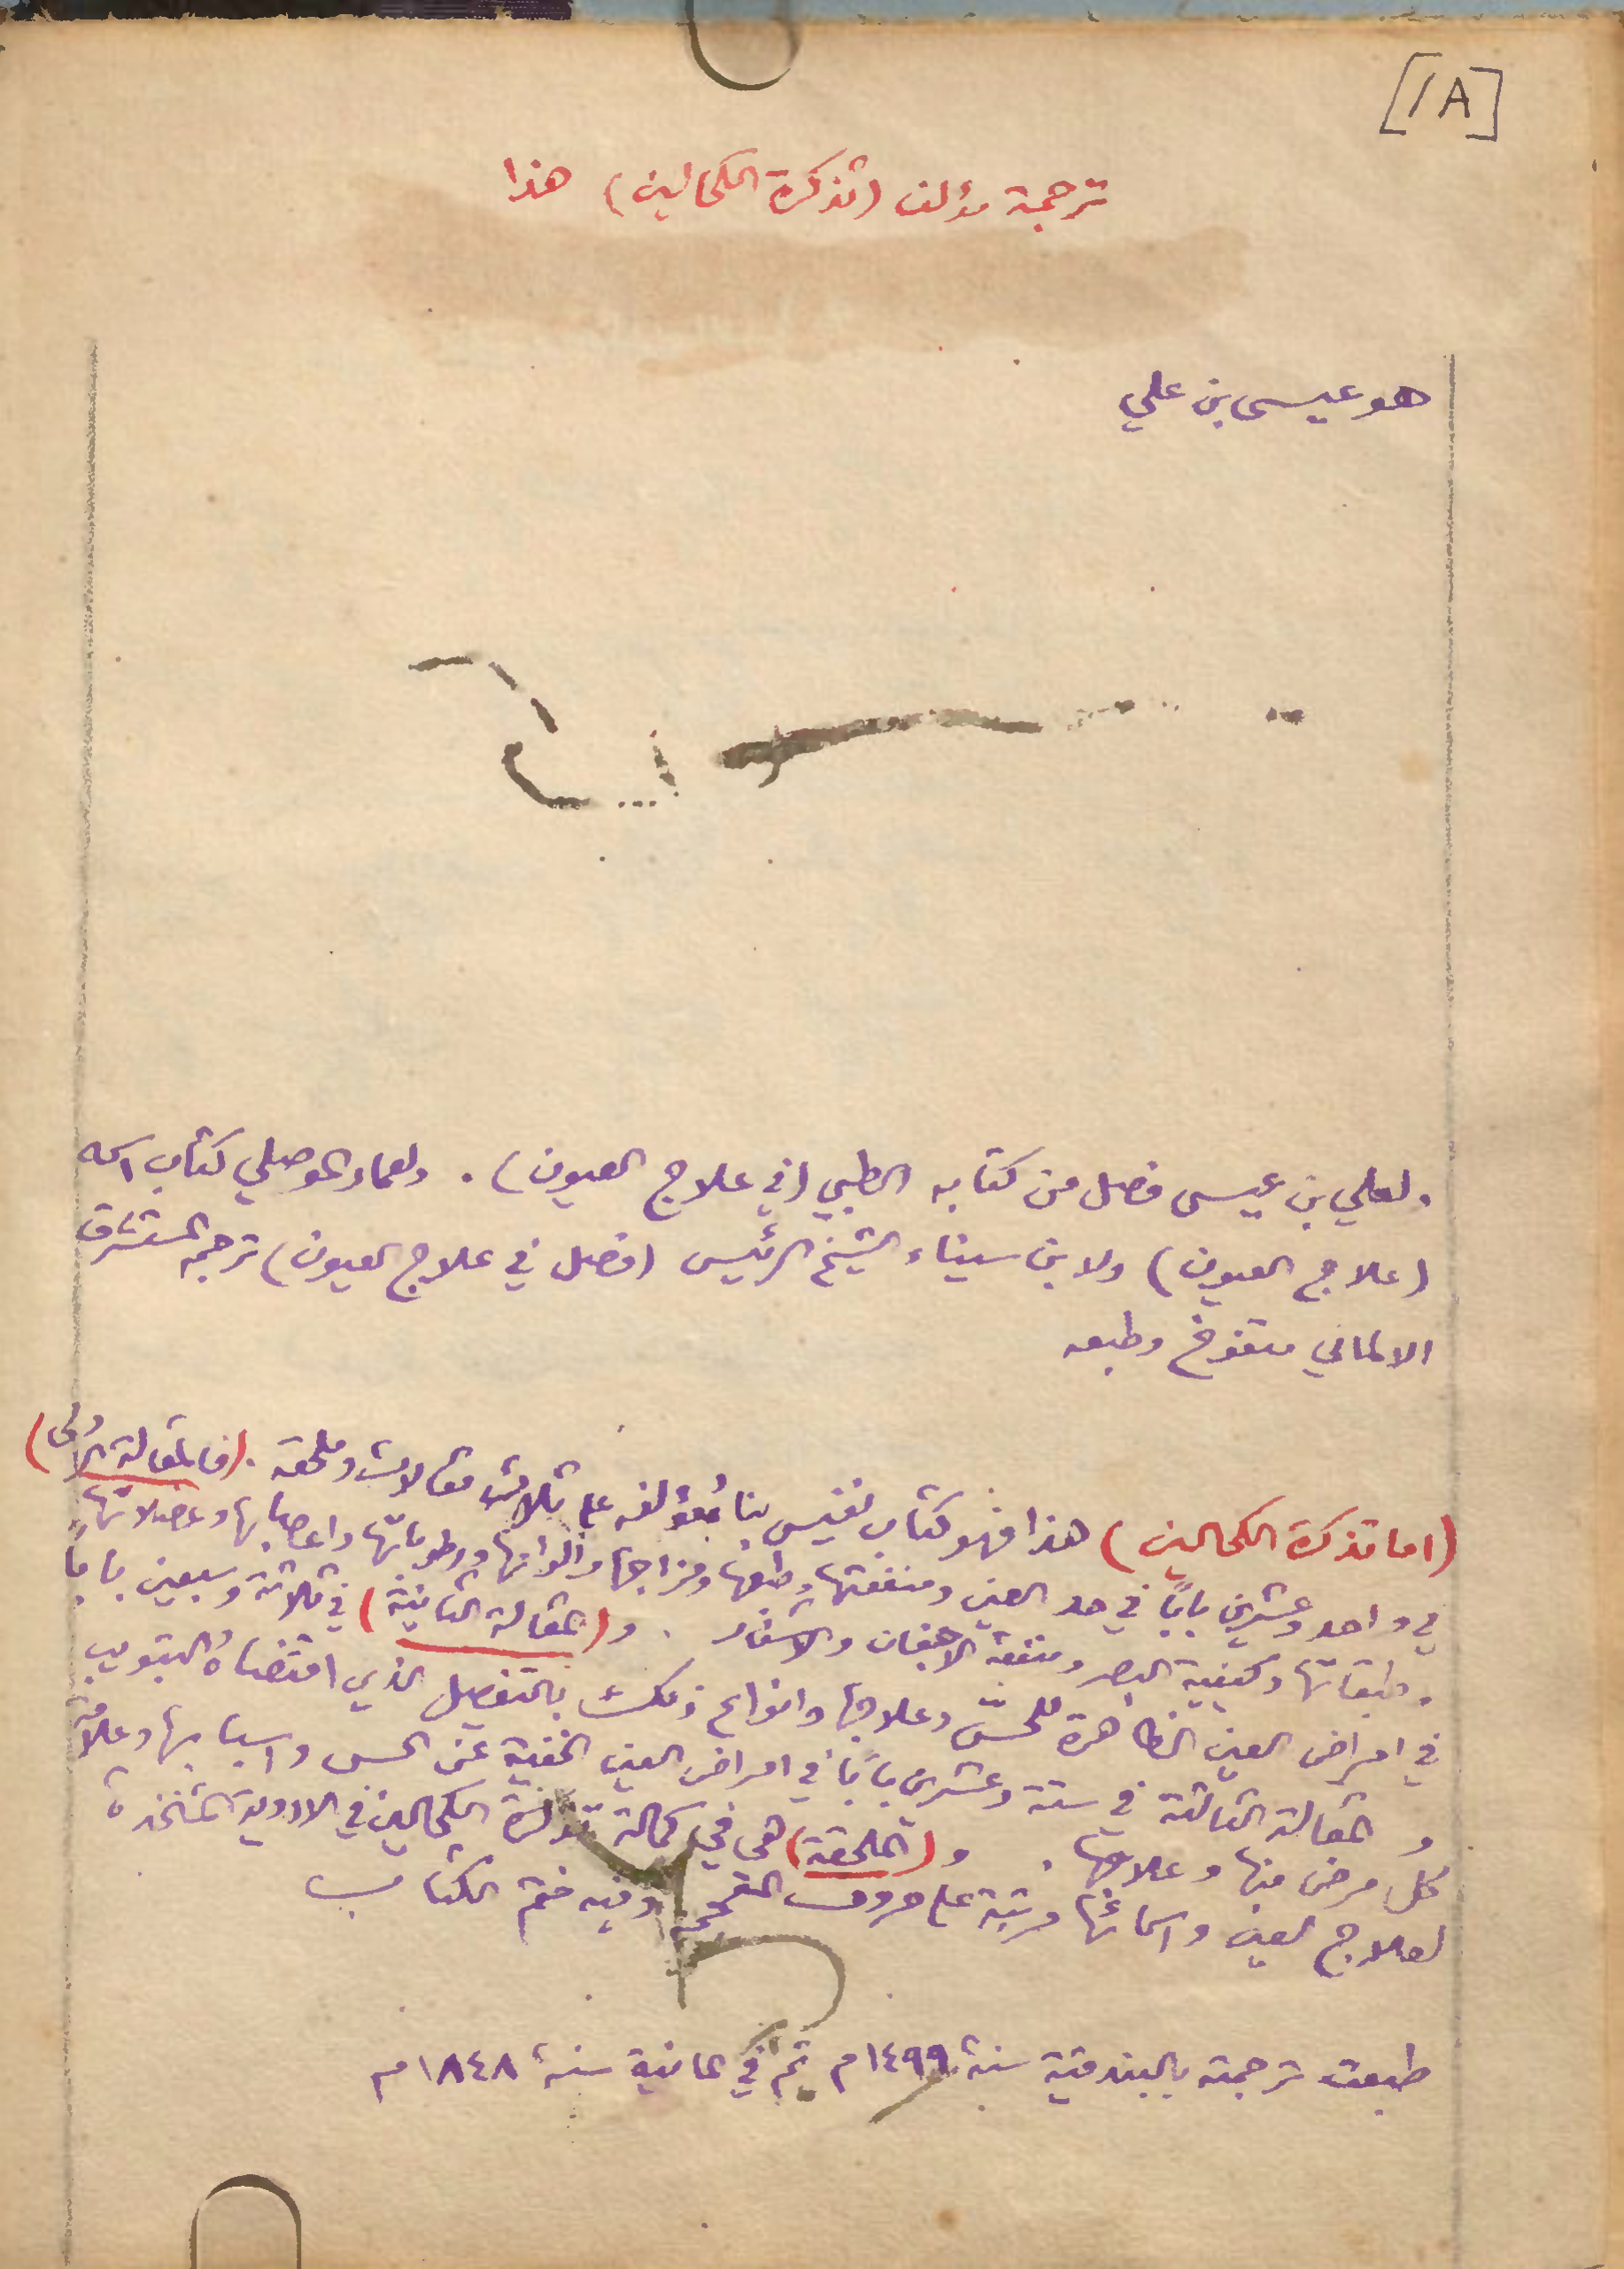 [1A]
ترجمة مؤلف (تذكرة الكحالين) هذا
هو عيسى بن علي
ولعلي بن عيسى فصل من كتابه الطبي (في علاج العيون). ولعمار الموصلي كتاب اسمه
(علاج العيون) ولابن سيناء الشيخ الرئيس (فصل في علاج العيون) ترجمه المستشرق
الالماني متفوخ وطبعه
(اما تذكرة الكحالين) هذا فهو كتاب نفيس بناه مؤلفه على ثلاث مقالات وملحقة. (فالمقالة الاولى)
في واحد وعشرين باباً في حد العين ومنفعتها وطبعها ومزاجها والوانها ورطوباتها واعصابها وعضلاتها
وطبقاتها وكيفية البصر ومنفعة الاجفان والاشفار. و(المقالة الثانية) في ثلاثة وسبعين باباً
في امراض العين الظاهرة للحسّ وعلاجها وانواع ذلك بالتفصيل الذي اقتضاه التبويب
و المقالة الثالثة في ستة وعشرين باباً في امراض العين الخفية عن الحس واسبابها وعلامة
كل مرض منها وعلاجها. و(الملحقة) هي في كمالة تذكرة الكحالين في الادوية المتخذة
لعلاج العين واسمائها مرتبة على حروف المعجم وفيه ختم الكتاب
طبعت ترجمته بالبندقية سنة ١٤٩٩م ثم في المانية سنة ١٨٤٨م